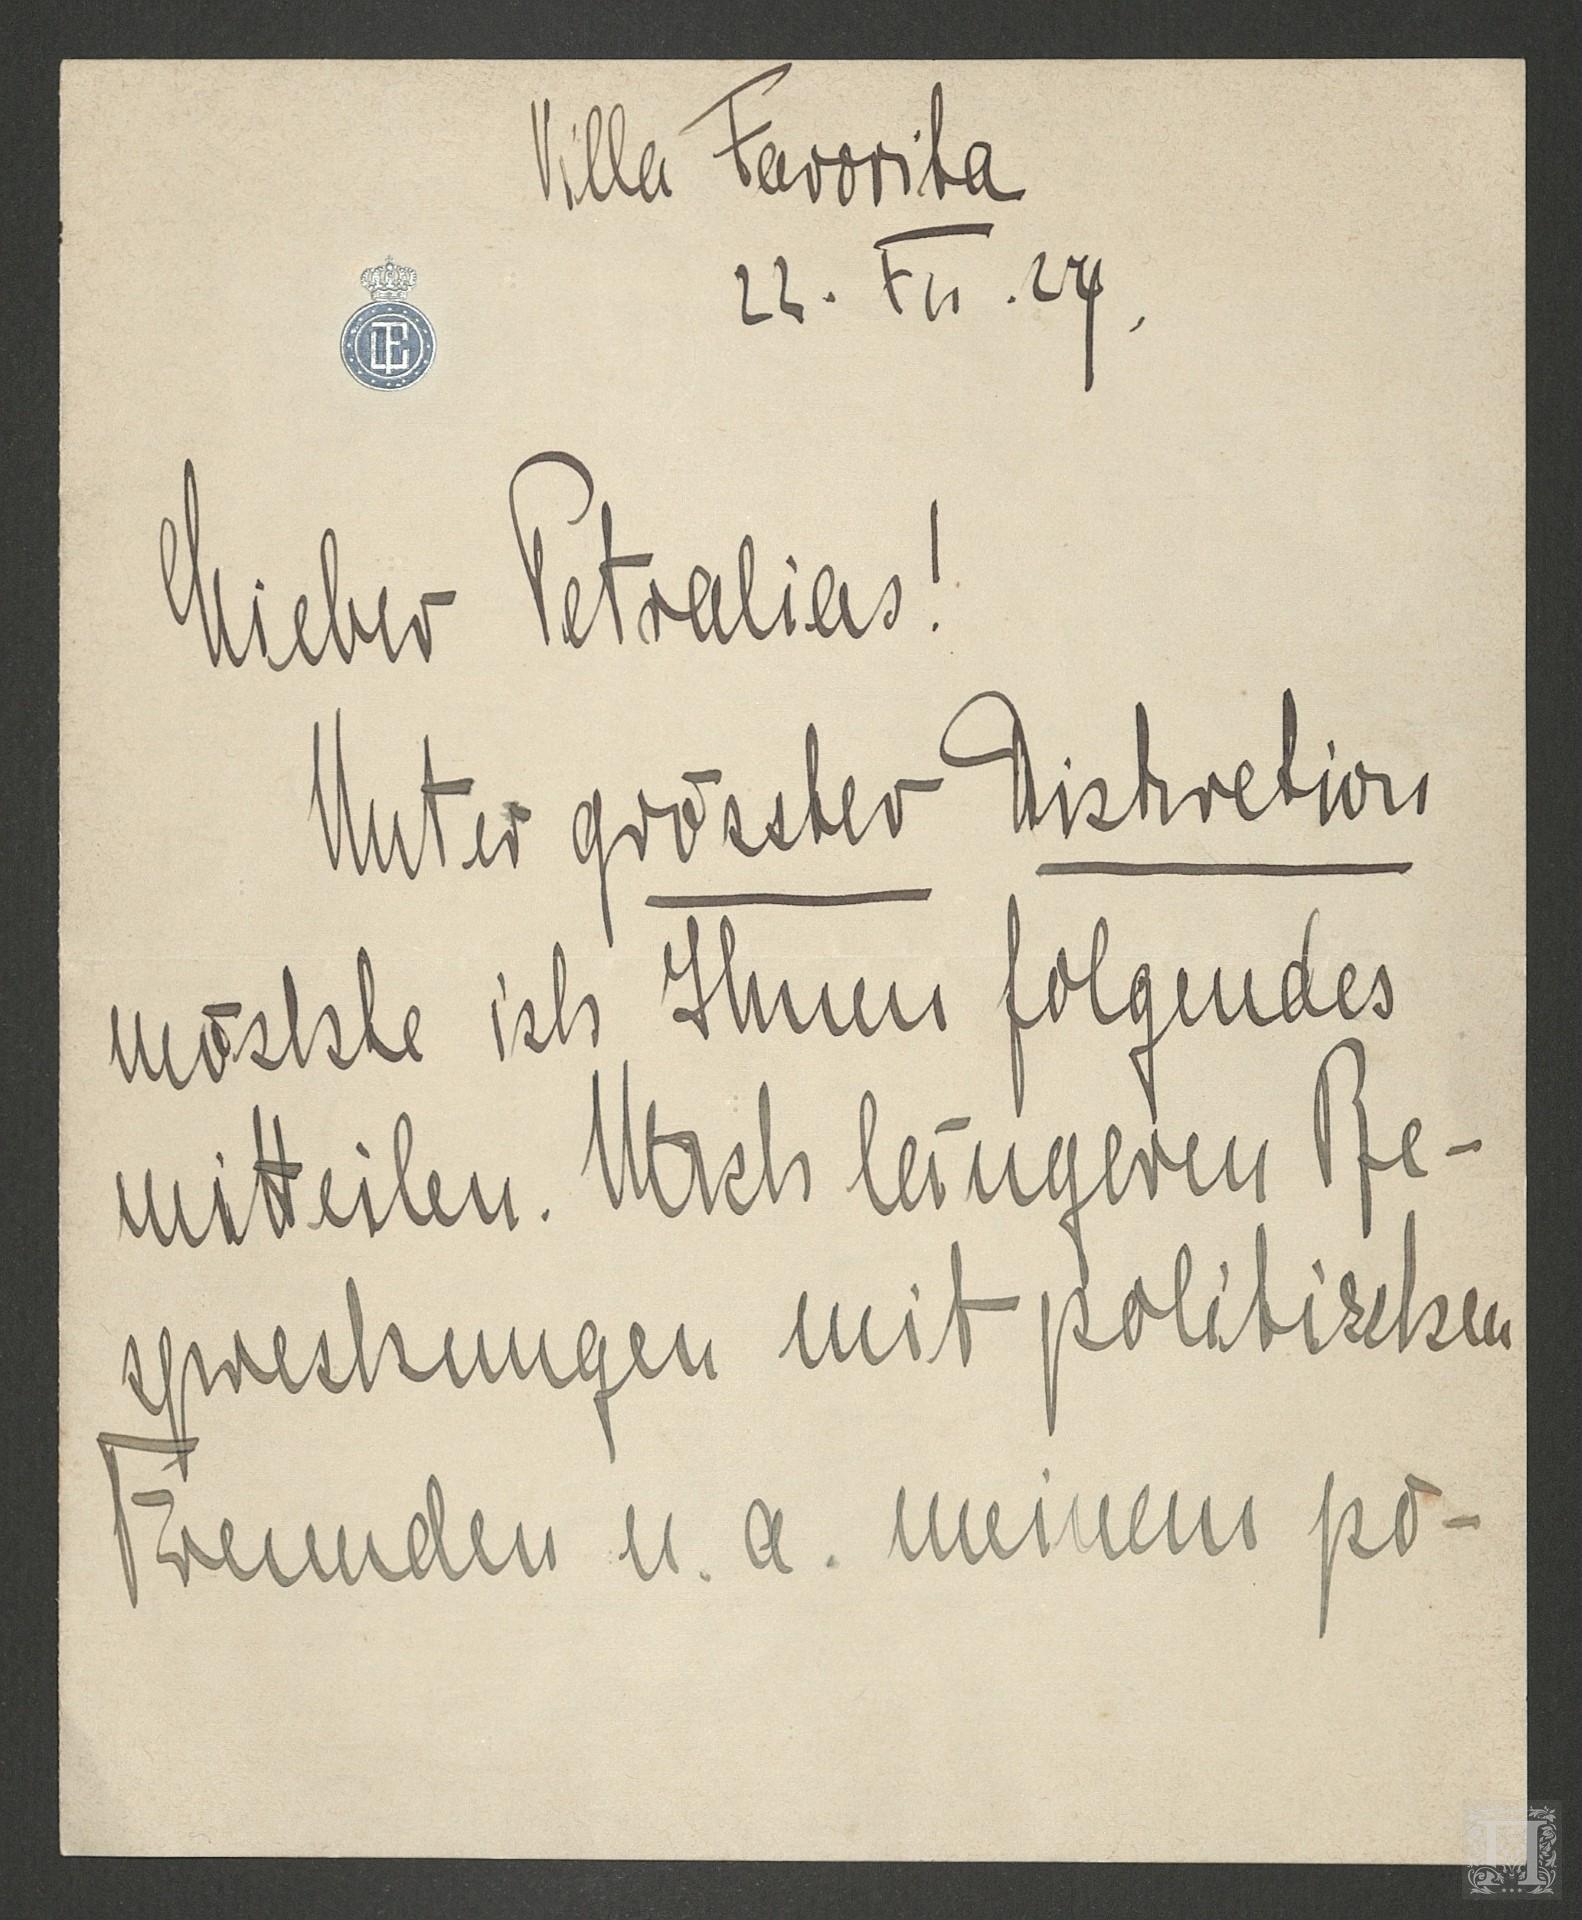 Villa Favorita
22. XII. 24.
Lieber Petralias!
Unter grösster Diskretion
möchte ich Ihnen folgendes
mitteilen. Nach längeren Be-
sprechungen mit politischen
Freunden u. a. meinem po-